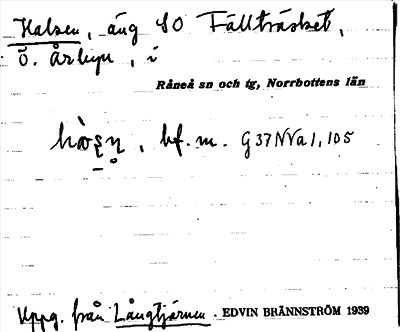 Halsen, äng SO Fällträsket,
ö. Årbyn, i
Råneå sn och tg, Norrbottens län
bf. m. G37NVa1,105
Uppg. från Långtjärnen. EDVIN BRÄNNSTRÖM 1939